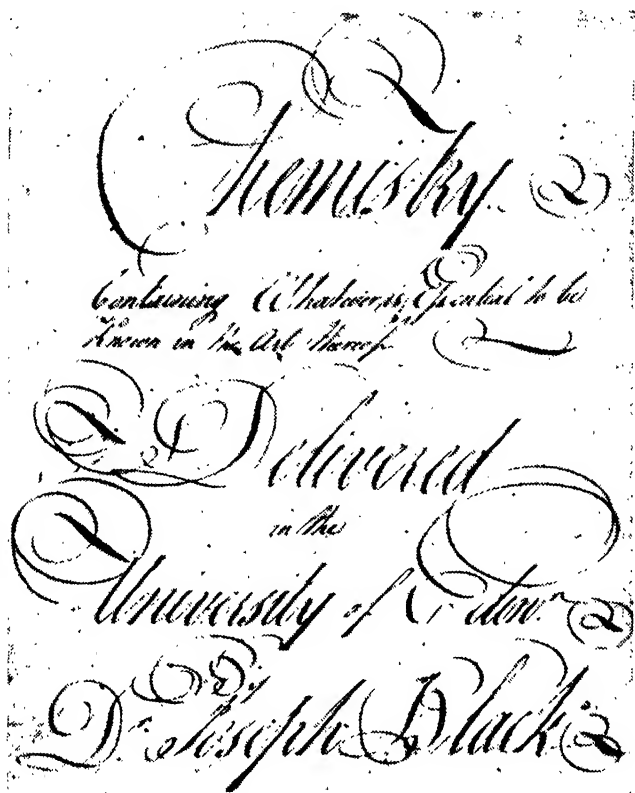 Chemistry
Containing Whatever is Essential to be
Known in the Art thereof
Delivered
in the
University of Edinr.
By
Dr. Joseph Black